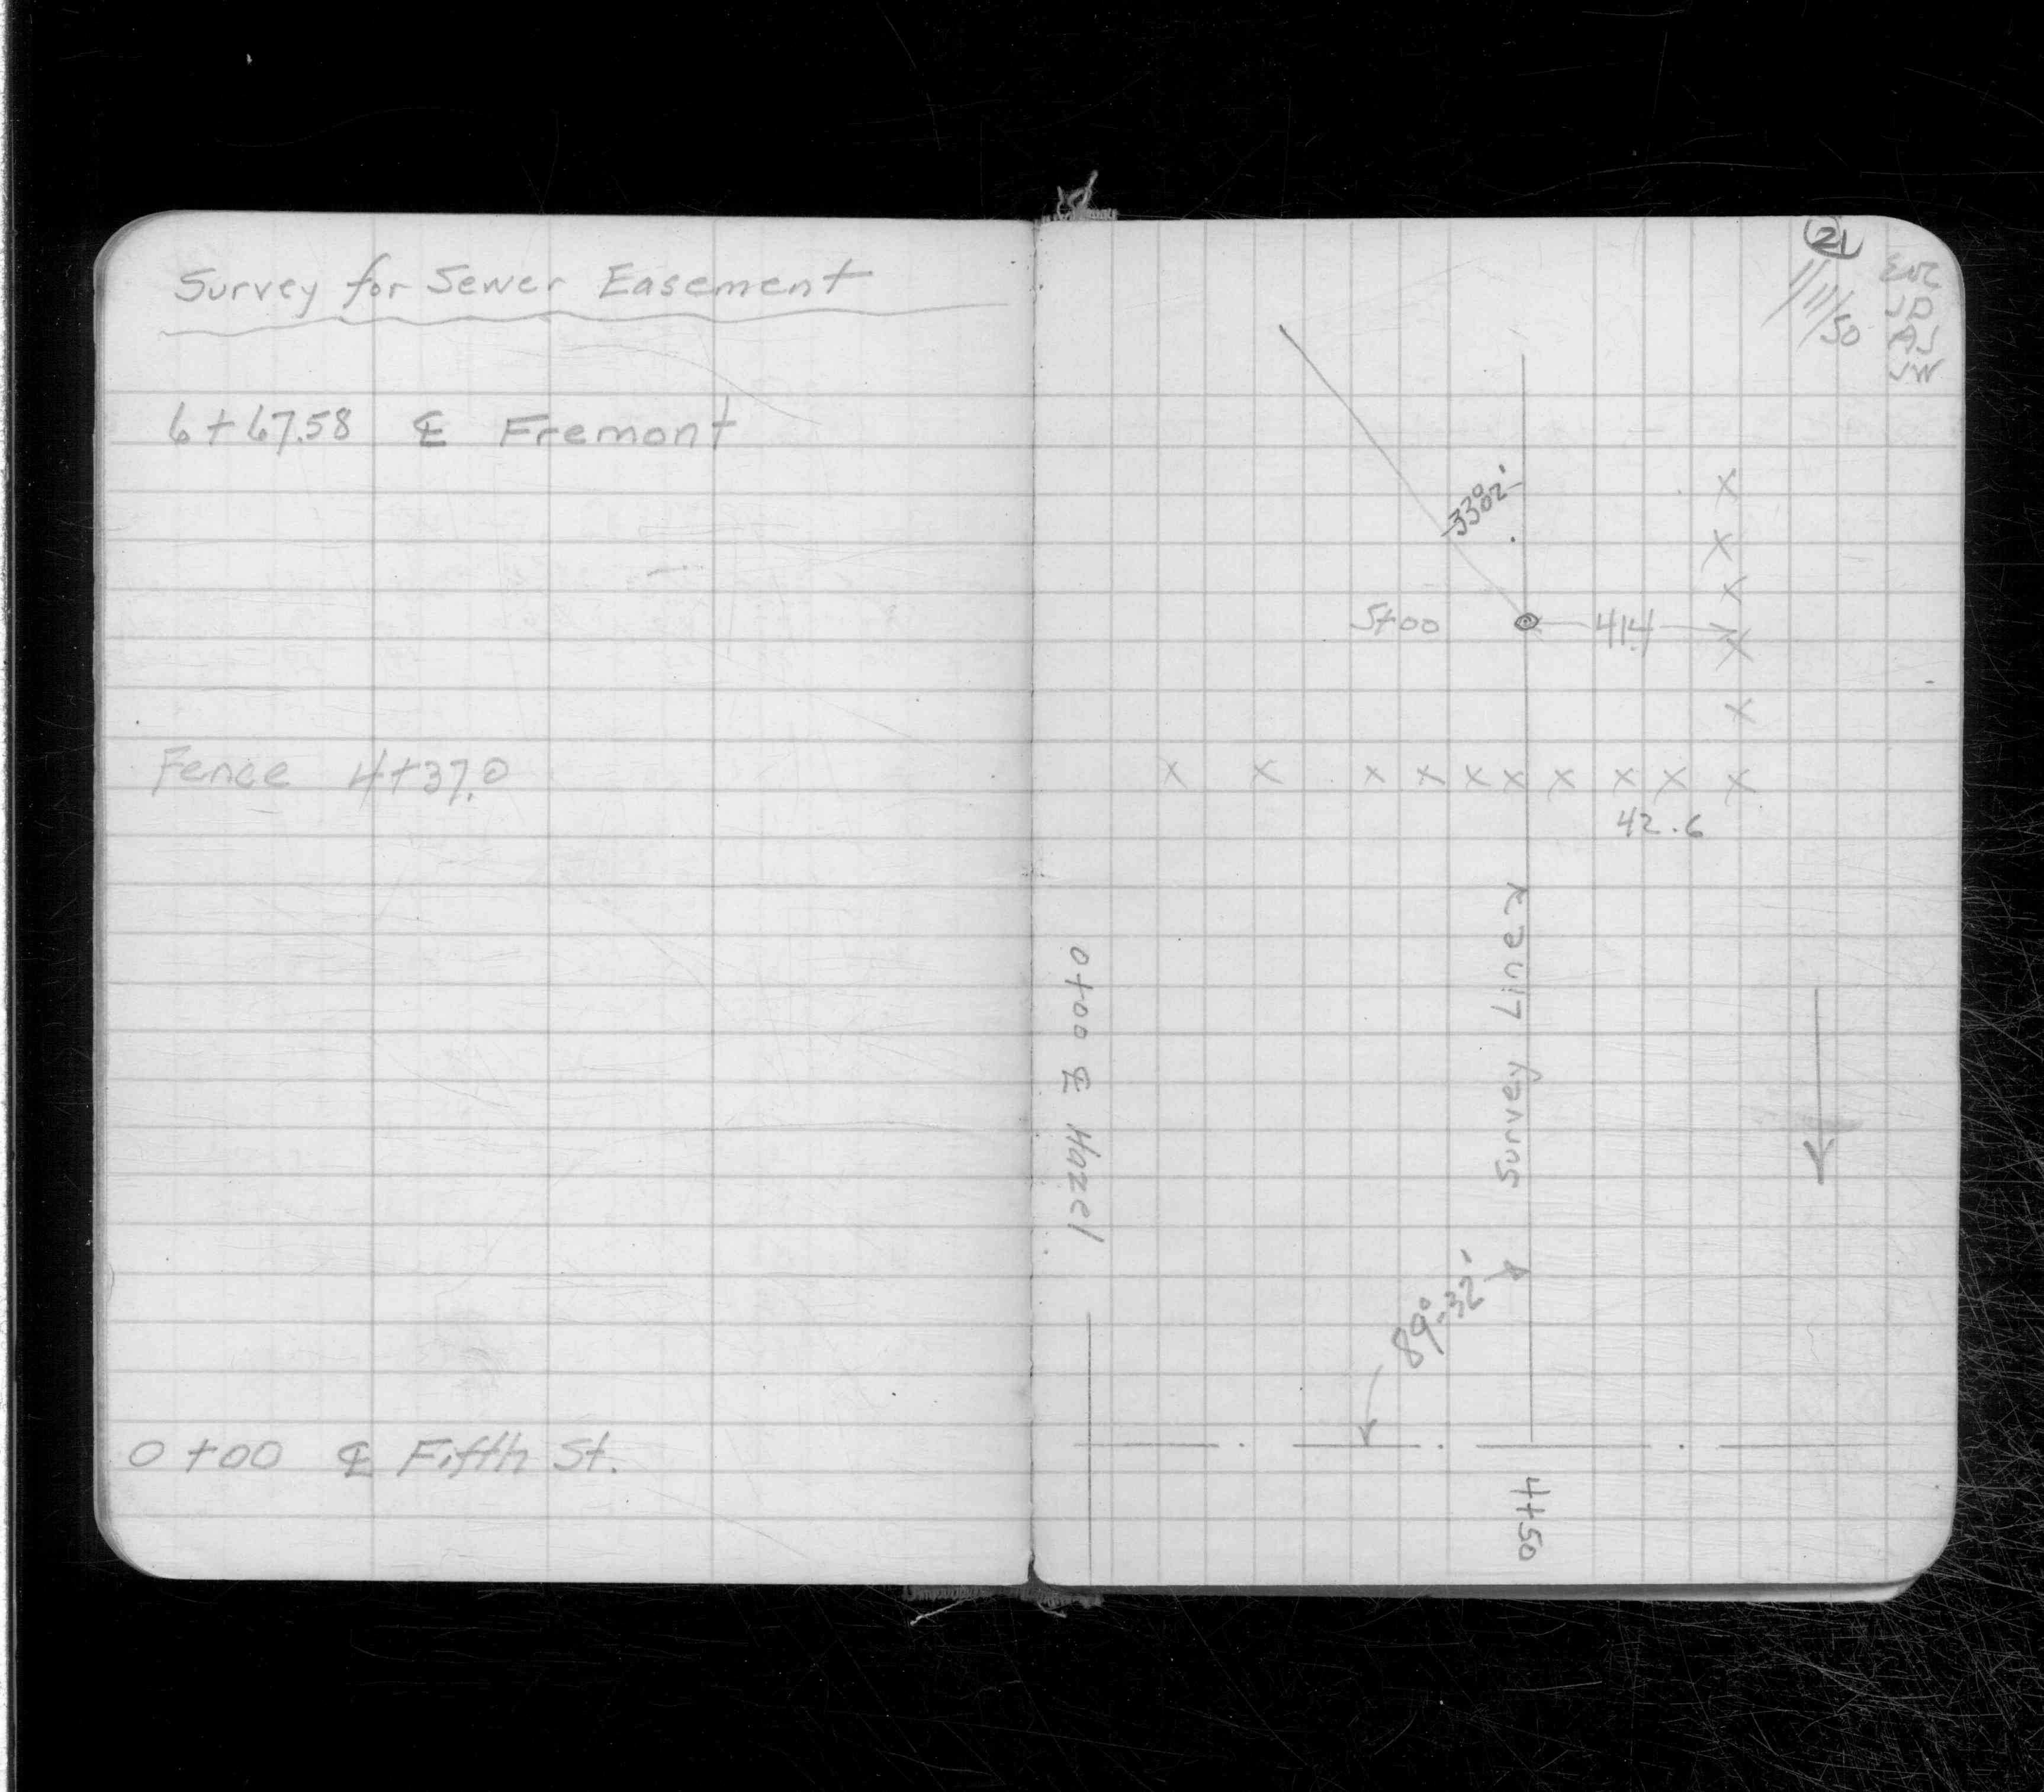 Survey for Sewer Easement
6+67.58 ℄ Fremont
Fence 4+37.0
0+00 ℄ Fifth St.
21
1/11/50
JD
AJ
JW
33°02'
5+00
41.4
42.6
Survey Line
0+00 ℄ Hazel
89°-32'
4+50